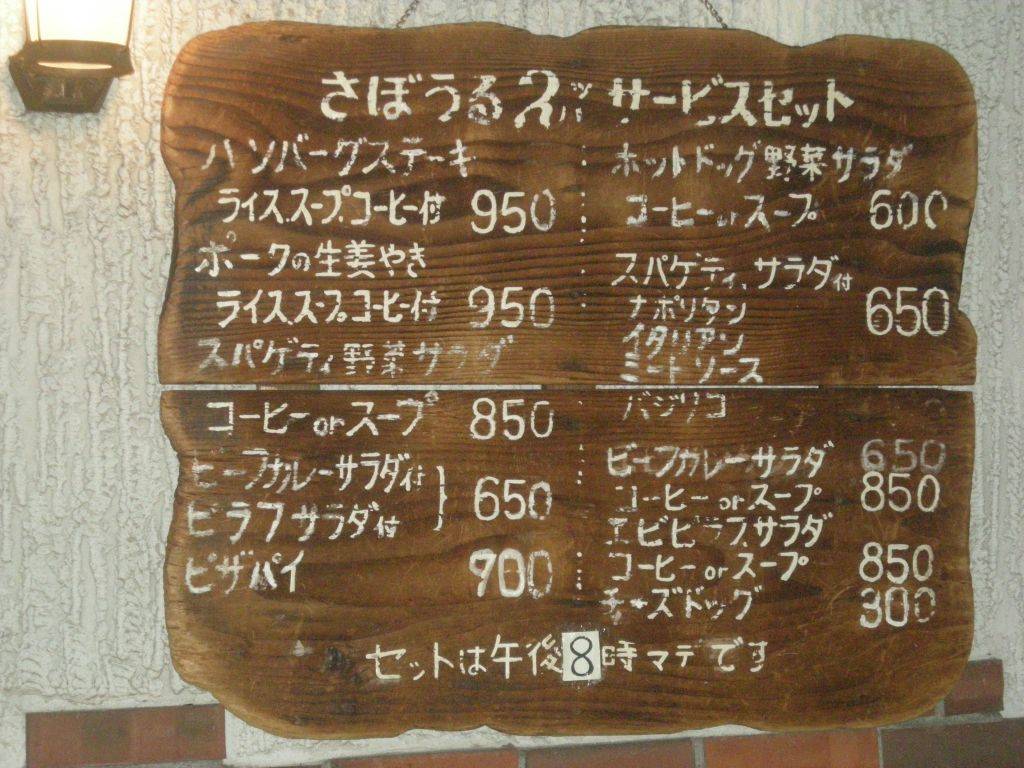 さぼうる2 サービスセット
ハンバーグステーキ
ライス、スープ、コーヒー付 950
ポークの生姜やき
ライス、スープ、コーヒー付 950
スパゲティ、野菜サラダ
コーヒーorスープ 850
ビーフカレーサラダ付
ピラフサラダ付
650
ピザパイ 900
ホットドッグ野菜サラダ
コーヒーorスープ 600
スパゲティ、サラダ付
ナポリタン
650
イタリアン
ミートソース
バジリコ
ビーフカレーサラダ 650
コーヒーorスープ 850
エビピラフサラダ
コーヒーorスープ 850
チーズドッグ 300
セットは午後8時マデです